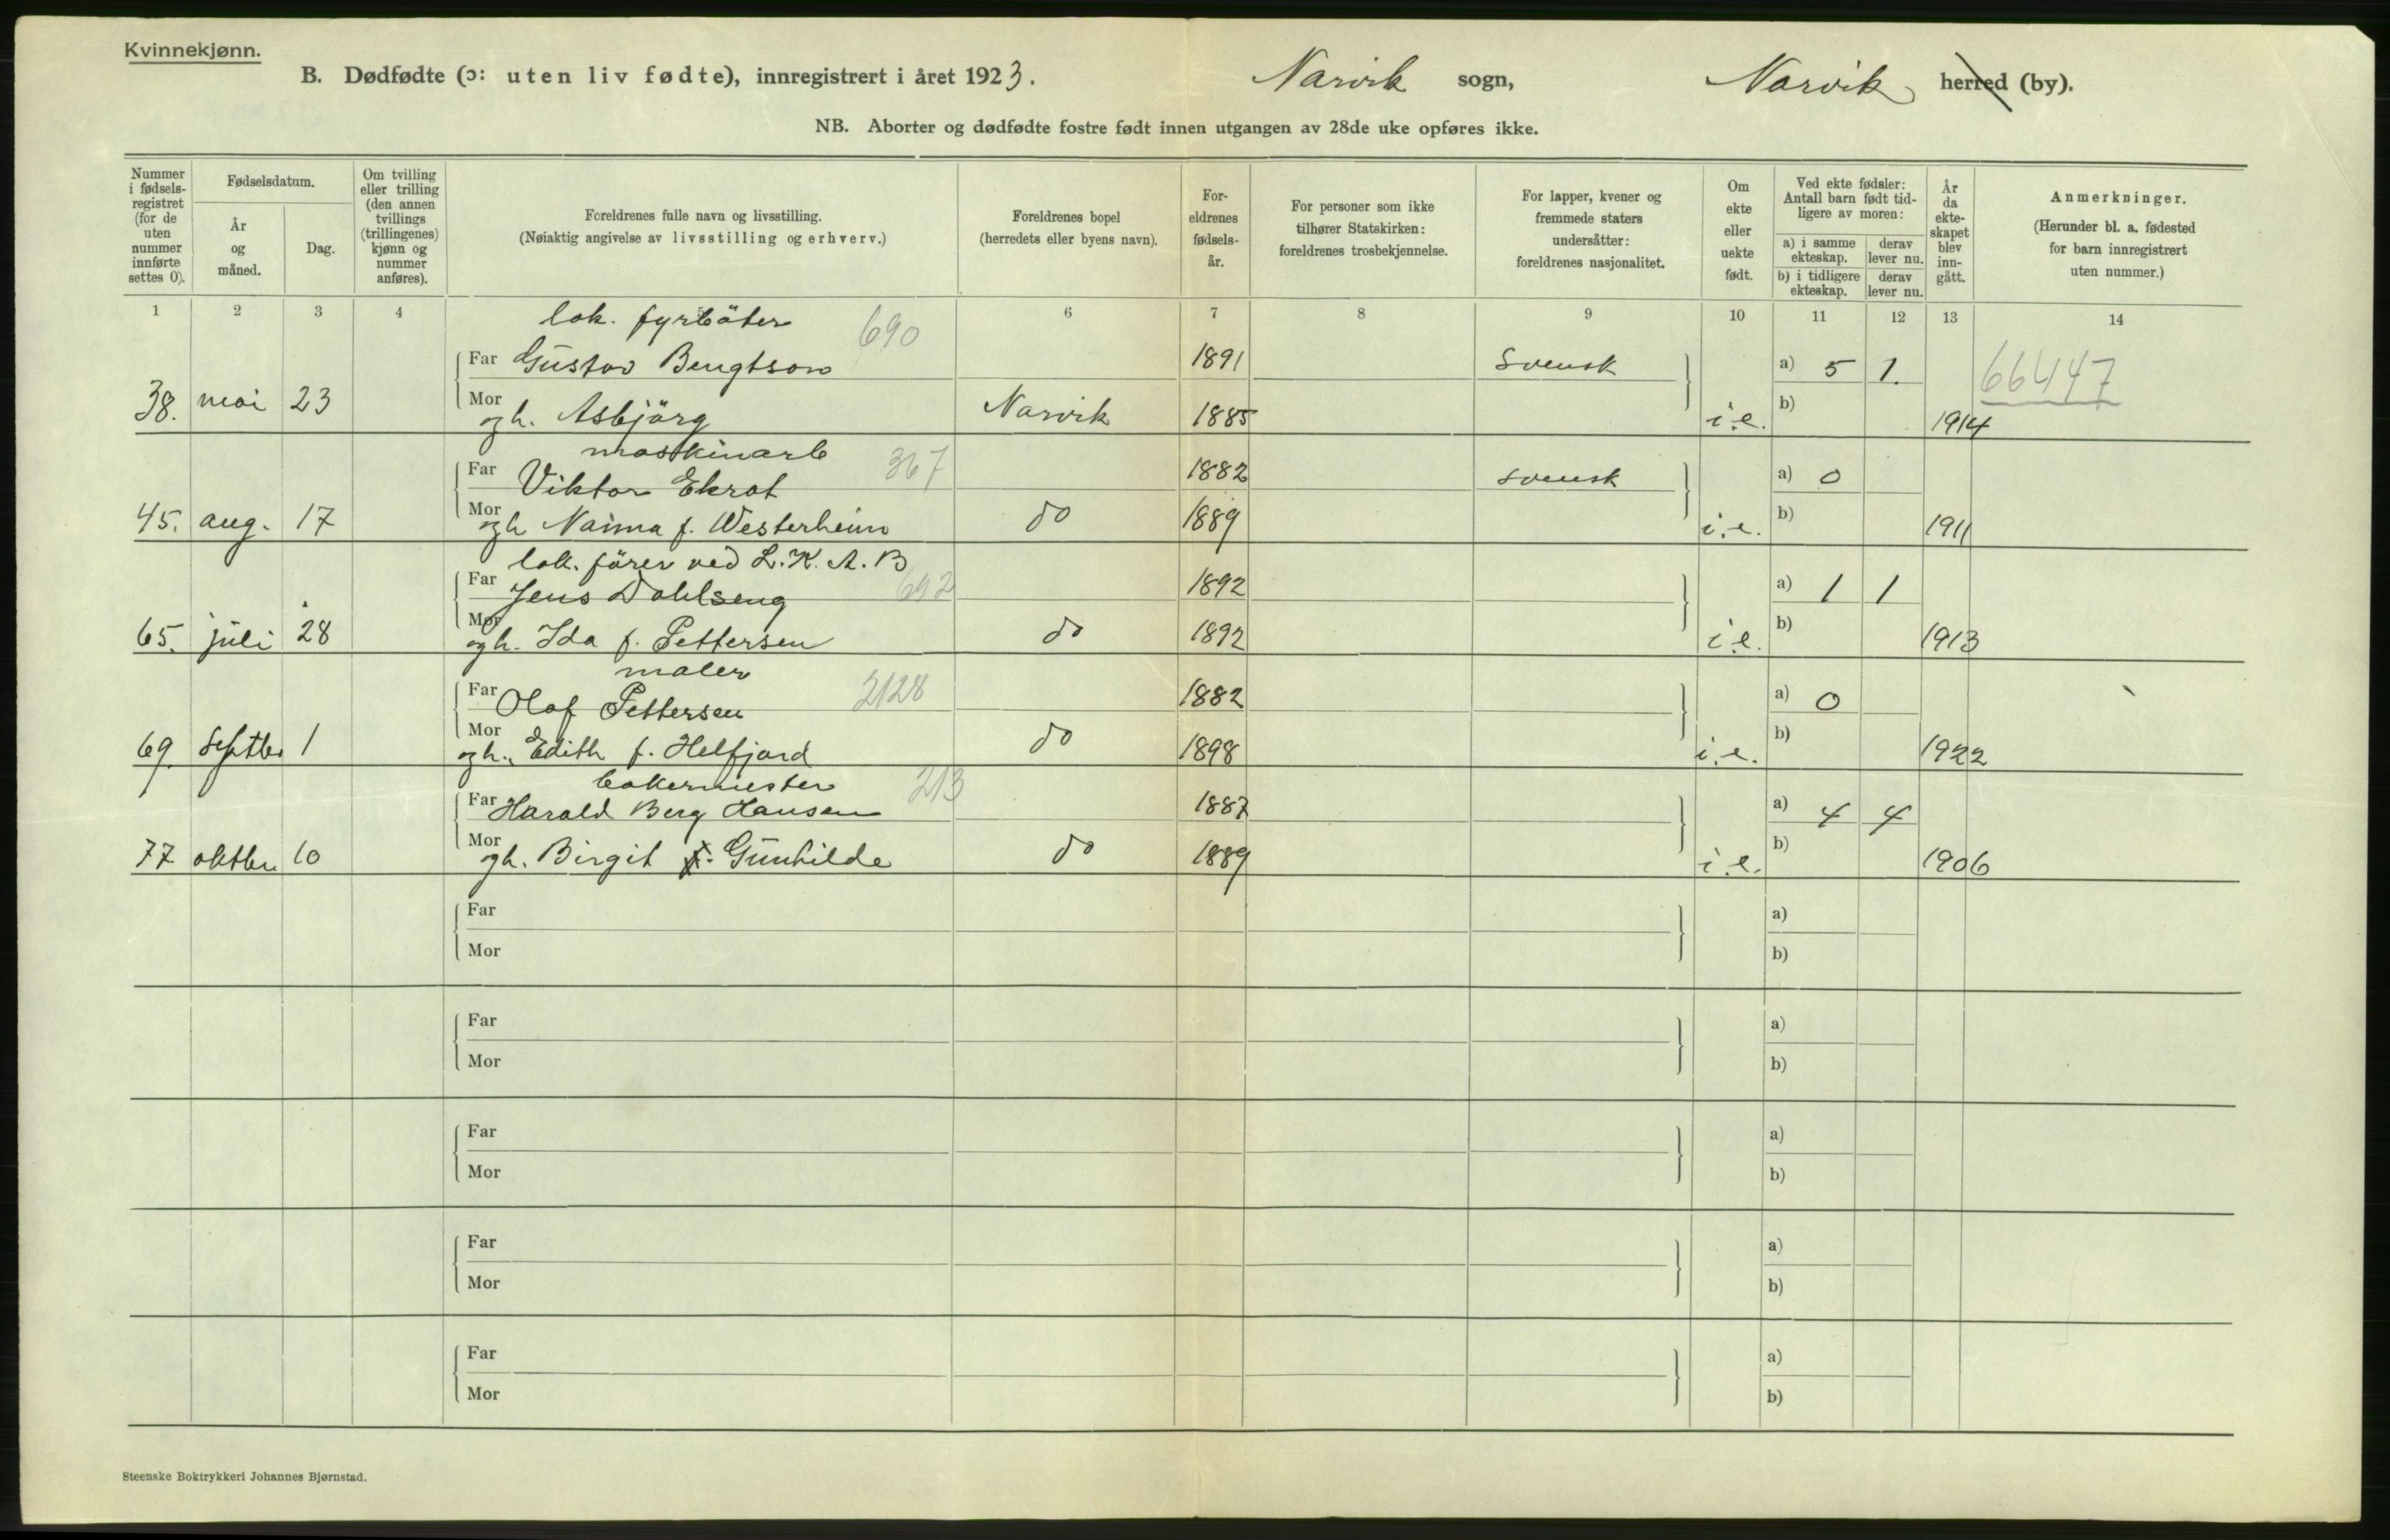 Kvinnekjønn.
B. Dødfødte (ɔ: uten liv fødte), innregistrert i året 1923. Narvik sogn, Narvik herred (by).
NB. Aborter og dødfødte fostre født innen utgangen av 28de uke opføres ikke.
Nummer
i fødsels-
registret
(for de
uten
nummer
innførte
settes 0).
Fødselsdatum.
År
og
måned.
Dag.
Om tvilling
eller trilling
(den annen
tvillings
(trillingenes)
kjønn og
nummer
anføres).
Foreldrenes fulle navn og livsstilling.
(Nøiaktig angivelse av livsstilling og erhverv.)
Foreldrenes bopel
(herredets eller byens navn).
For-
eldrenes
fødsels-
år.
For personer som ikke
tilhører Statskirken:
foreldrenes trosbekjennelse.
For lapper, kvener og
fremmede staters
undersåtter:
foreldrenes nasjonalitet.
Om
ekte
eller
uekte
født.
Ved ekte fødsler:
Antall barn født tid-
ligere av moren:
a) i samme
ekteskap.
derav
lever nu.
b) i tidligere
ekteskap.
derav
lever nu.
År
da
ekte-
skapet
blev
inn-
gått.
Anmerkninger.
(Herunder bl. a. fødested
for barn innregistrert
uten nummer.)
1 2 3 4 6 7 8 9 10 11 12 13 14
lok. fyrböter 690
Far Gustav Bengtson 1891 Svensk a) 5 1. 66447
38. mai 23 Mor og h. Asbjörg Narvik 1885 i.e. b) 1914
maskinarb 367
Far Viktor Ekrot 1882 svensk a) 0
45. aug. 17 Mor og h Naima f. Westerheim do 1889 i.e. b) 1911
lok. förer ved L.K.A.B 692
Far Jens Dahlseng 1892 a) 1 1
65. juli 28 Mor og h. Ida f. Pettersen do 1892 i.e. b) 1913
maler
Far Olaf Pettersen 2128 1882 a) 0
69. Septbr 1 Mor og h. Edith f. Helfjord do 1898 i.e. b) 1922
bakermester 213
Far Harald Berg Hansen 1887 a) 4 4
77 oktbr 10 Mor og h. Birgit f. Gunhilde do 1889 i.e. b) 1906
Far a)
Mor b)
Far a)
Mor b)
Far a)
Mor b)
Far a)
Mor b)
Far a)
Mor b)
Steenske Boktrykkeri Johannes Bjørnstad.